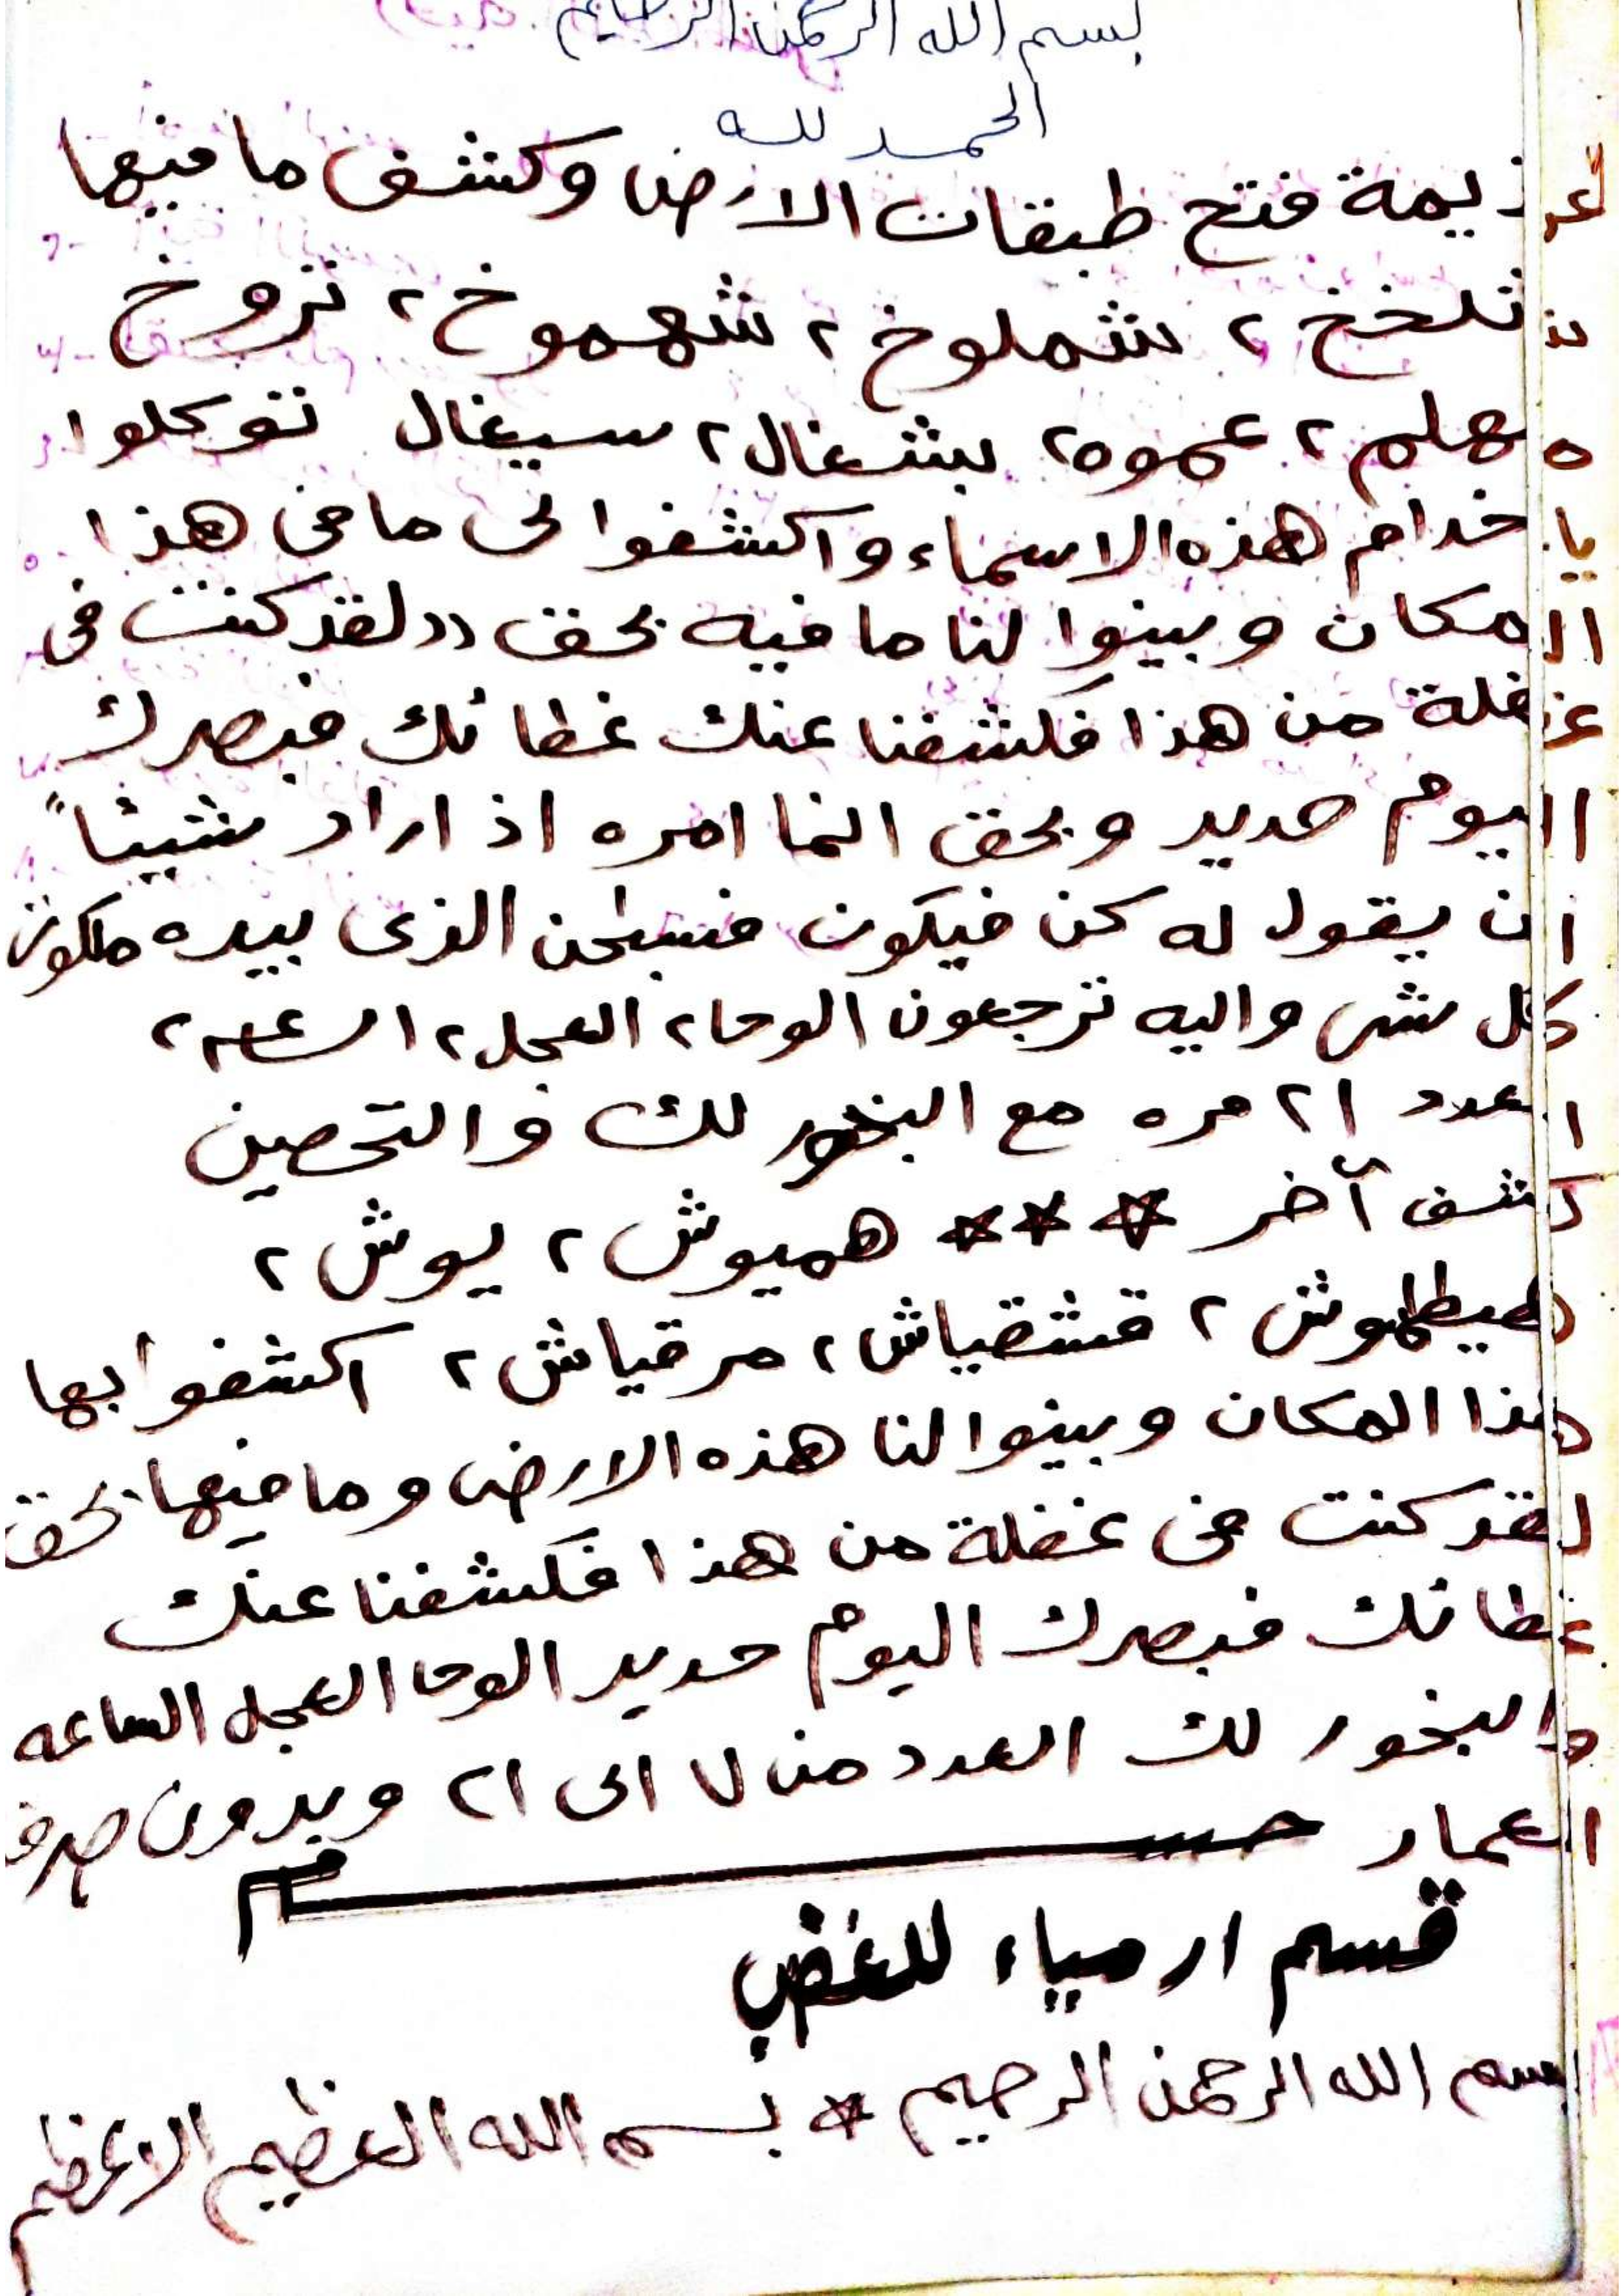 بسم الله الرحمن الرحيم
الحمد لله
عزيمة فتح طبقات الارض وكشف ما فيها
تلخخ ٢ شملوخ ٢ شهموخ ٢ نزوخ
مهلم ٢ عموه ٢ بشغال ٢ سيغال توكلوا
يا خدام هذه الاسماء واكشفوا لى ما فى هذا
المكان وبينوا لنا ما فيه بحق ((لقد كنت فى
غفلة من هذا فكشفنا عنك غطائك فبصرك
اليوم حديد وبحق انما امره اذ اراد شيئاً
ان يقول له كن فيكون فسبحن الذى بيده ملكوت
كل شى واليه ترجعون الوحا ٢ العجل ٢ الساعه ٢
العدد ٢١ مره مع البخور لك والتحصين
كشف آخر *** هميوش ٢ ليوش ٢
طيطهوش ٢ قشقياش ٢ مرقياش ٢ اكشفوا بها
هذا المكان وبينوا لنا هذه الارض وما فيها بحق
لقد كنت فى غفلة من هذا فكشفنا عنك
غطائك فبصرك اليوم حديد الوحا العجل الساعه
والبخور لك العدد من ٧ الى ٢١ وبدون صرف
العمار
قسم ارمياء للغضب
بسم الله الرحمن الرحيم * بسم الله العظيم الاعظم